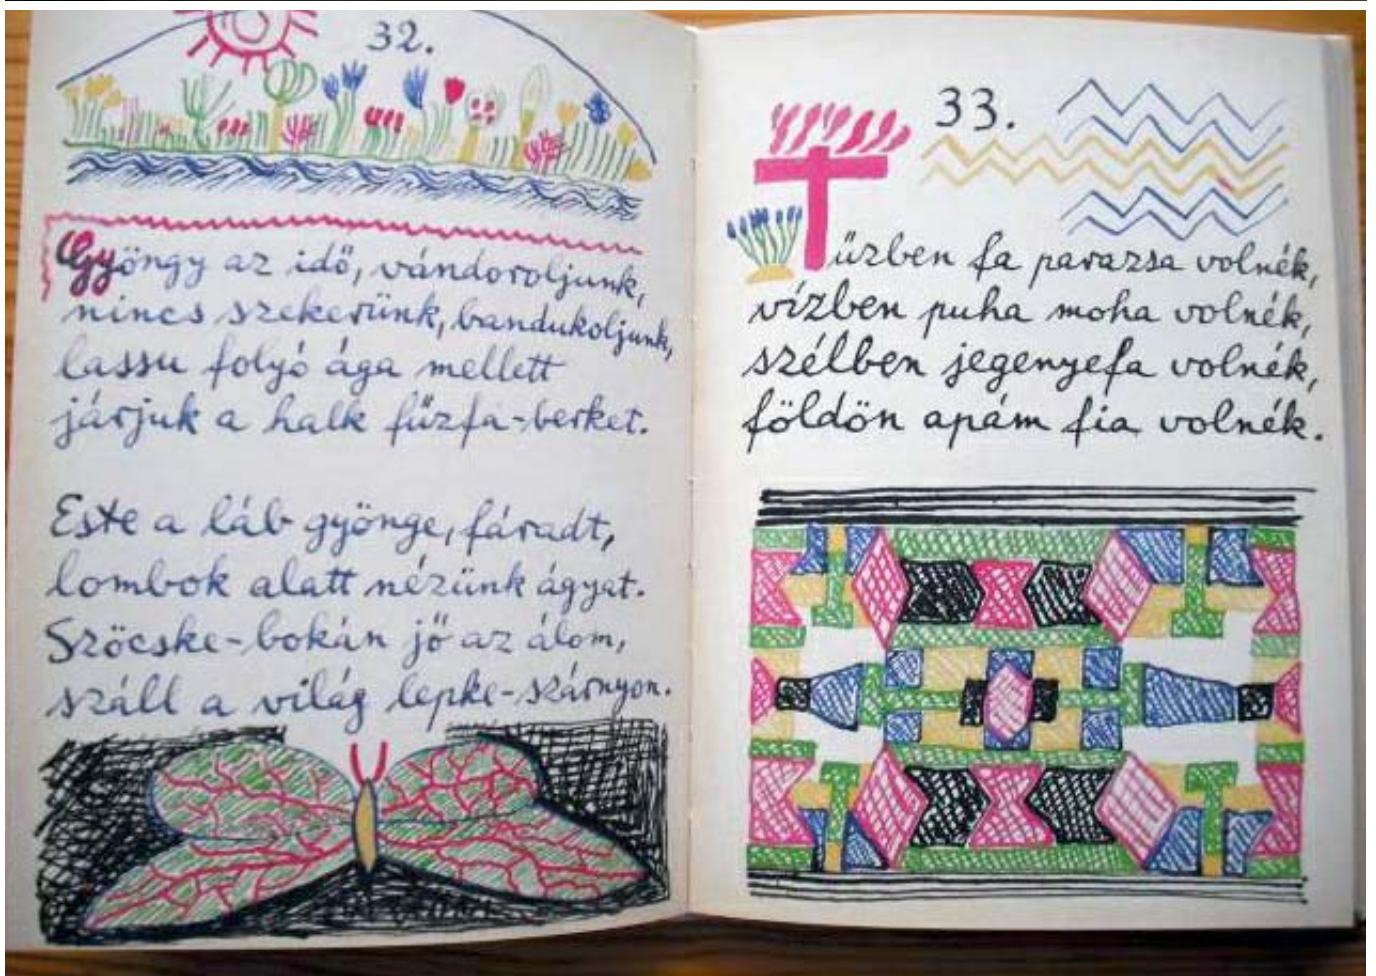 32.
Gyöngy az idő, vándoroljunk,
nincs szekerünk, bandukoljunk,
lassu folyó ága mellett
járjuk a halk fűzfa-berket.
Este a láb gyönge, fáradt,
lombok alatt nézünk ágyat.
Szöcske-bokán jő az álom,
száll a világ lepke-szárnyon.
33.
Tűzben fa parazsa volnék,
vízben puha moha volnék,
szélben jegenyefa volnék,
földön apám fia volnék.